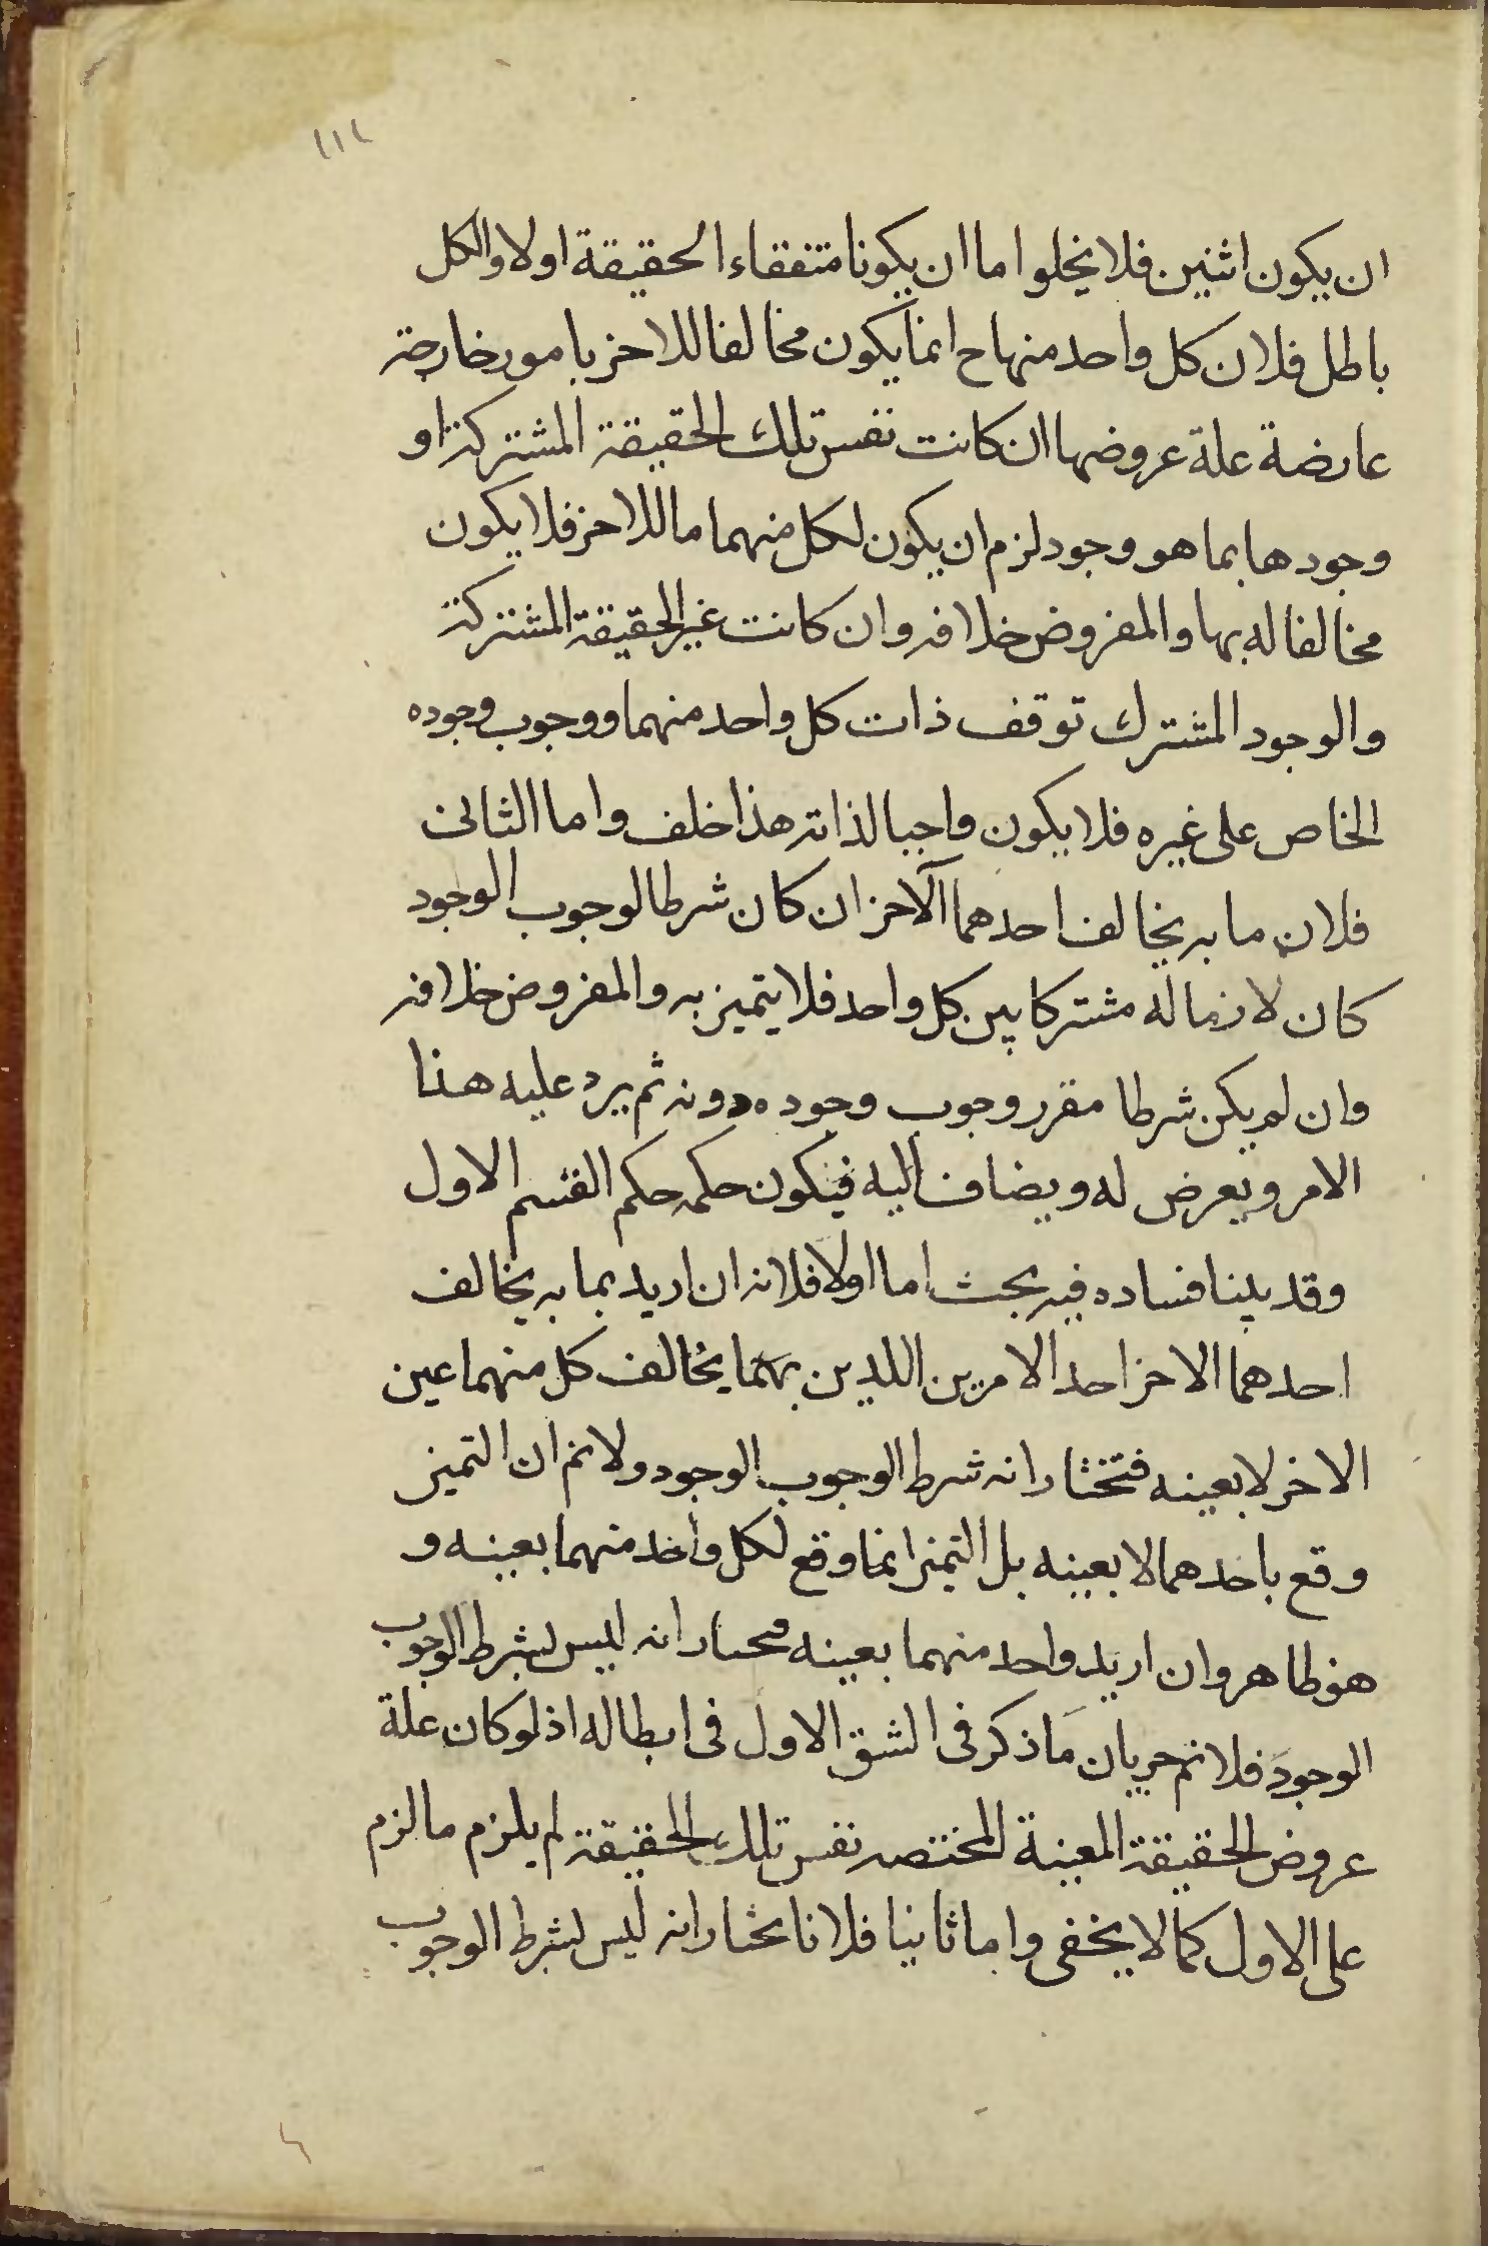 ١١٢
ان يكون اثنين فلا يخلوا اما ان يكونا متفقاء الحقيقة اولا والكل
باطل فلان كل واحد منهاح انما يكون مخالفا للاخر بامور خارجة
عارضة علة عروضها ان كانت نفس تلك الحقيقة المشتركة او
وجودها بما هو وجود لزم ان يكون لكل منهما ما للاخر فلا يكون
مخالفا له بها والمفروض خلافه وان كانت غير الحقيقة المشتركة
والوجود المشترك توقف ذات كل واحد منهما ووجوب وجوده
الخاص على غيره فلا يكون واجبا لذاته هذا خلف واما الثانى
فلان ما به يخالف احدهما الآخر ان كان شرطا لوجوب الوجود
كان لازما له مشتركا بين كل واحد فلا يتميز به والمفروض خلافه
وان لم يكن شرطا مقرر وجوب وجوده دونه ثم يرد عليه هذا
الامر ويعرض له ويضاف اليه فيكون حكمه حكم القسم الاول
وقد بينا فساده فيه بحث اما اولا فلانه ان اريد بما به يخالف
احدهما الاخر احد الامرين اللذين بهما يخالف كل منهما عين
الاخر لا بعينه فتختار انه شرط الوجوب الوجود ولانم ان التميز
وقع باحدهما لا بعينه بل التميز انما وقع لكل واحد منهما بعينه و
هو ظاهر وان اريد واحد منهما بعينه فيختار انه ليس لشرط الوجوب
الوجود فلانم جريان ما ذكر فى الشق الاول فى ابطاله اذ لو كان علة
عروض الحقيقة المعينة المختصه نفس تلك الحقيقة لم يلزم ما لزم
على الاول كما لا يخفى واما ثانيا فلانا نختار انه ليس لشرط الوجوب